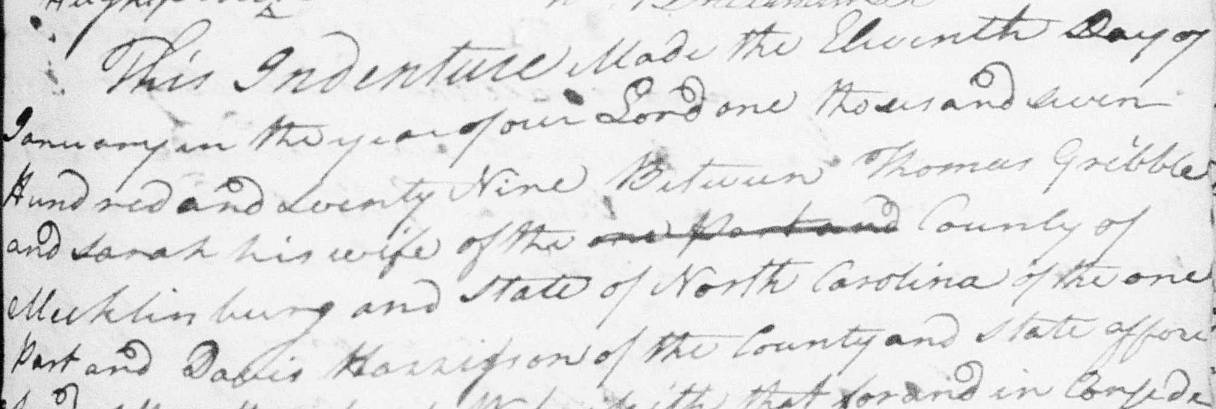 This Indenture Made the Eleventh Day of
January in the year of our Lord one thousand seven
Hundred and seventy Nine Between Thomas Gribble
and Sarah his wife of the one Part and County of
Mecklinburg and State of North Carolina of the one
Part and Davis of the County and State affore
that for and in Conside